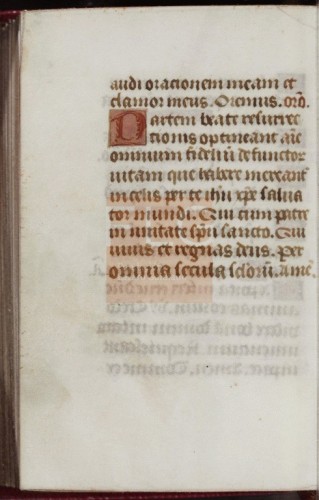 audi orationem meam et
clamor meus. Oremus. orō.
Partem beate resurrec
tionis optineant aīe
omnium fideliū defunctor
uitam que habere mereant
in celis per te ihū xp̄e salua
tor mundi. Qui cum patre
in unitate sp̄u sancto. Qui
uiuis et regnas deus. Per
omnia secula sclorū. amē.